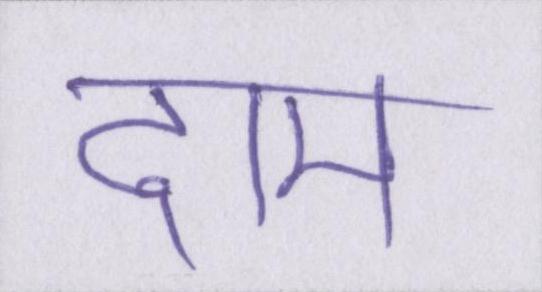 दाम